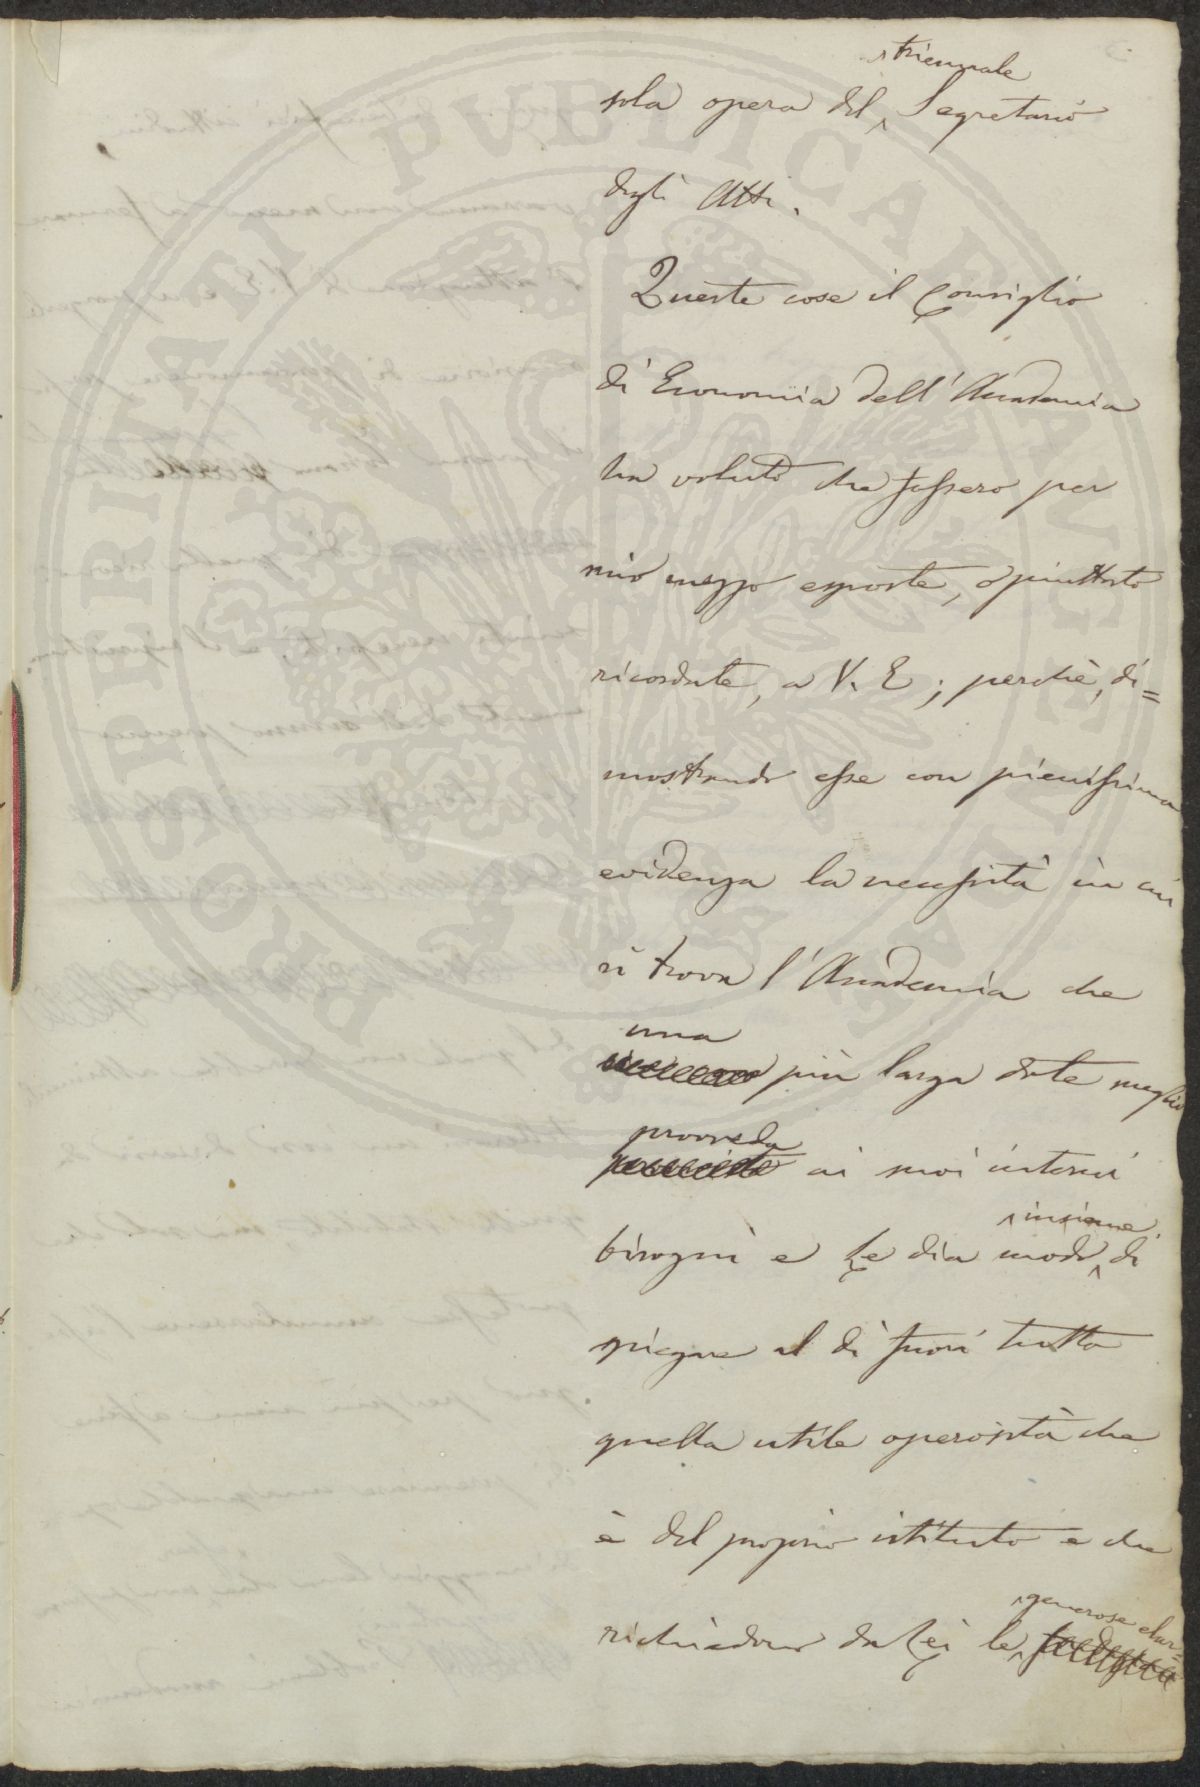 triennale
sola opera del Segretario
degli Atti.
Queste cose il Consiglio
di Economia dell'Accademia
ha voluto che fossero per
mio mezzo esposte, o piuttosto
ricordate, a V. E; perchè, di=
mostrando esse con pienissima
evidenza la necessità in cui
si trova l'Accademia che
una
più larga dote meglio
provveda
ai suoi interni
insieme
bisogni e le dia modo di
spiegare al di fuori tutta
quella utile operosità che
è del proprio istituto e che
generose elar=
richiedono da Lei le
PROSPERITATI PUBLICAE AUGENDAE